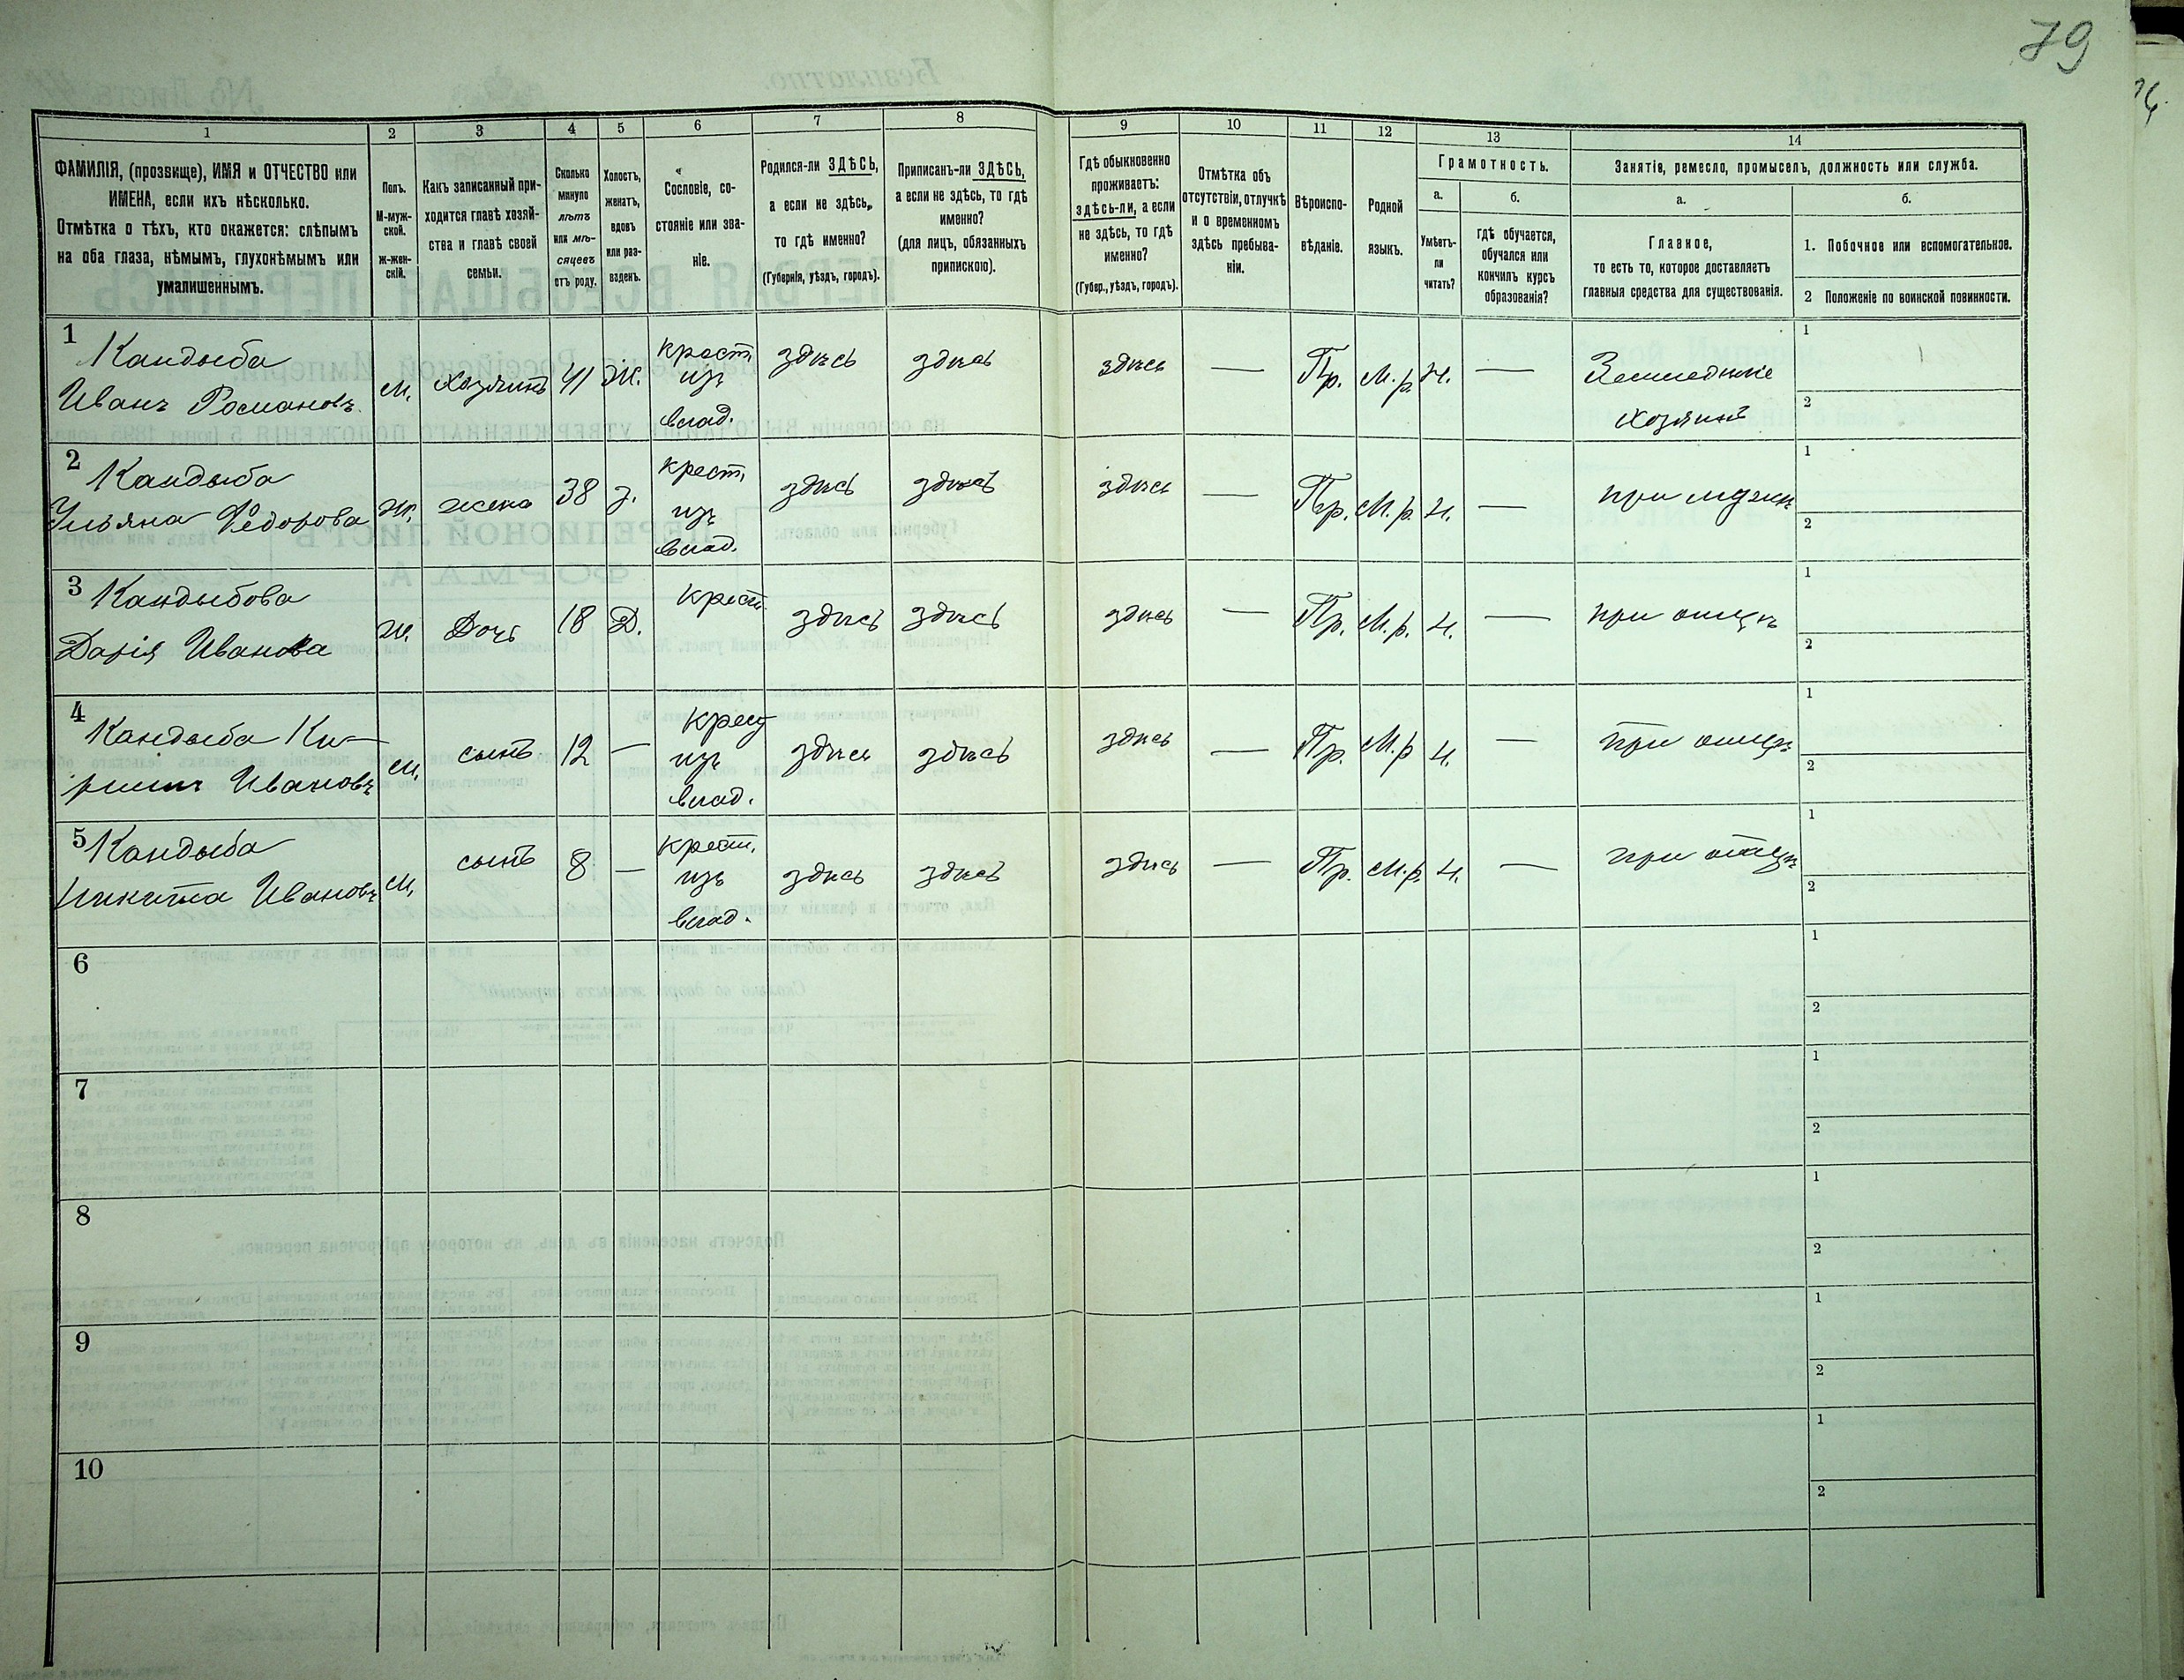 79
1 2 3 4 5 6 7 8 9 10 11 12 13 14
ФАМИЛІЯ, (прозвище), ИМЯ и ОТЧЕСТВО или
ИМЕНА, если ихъ нѣсколько.
Отмѣтка о тѣхъ, кто окажется: слѣпымъ
на оба глаза, нѣмымъ, глухонѣмымъ или
умалишеннымъ.
Полъ.
М-муж-
ской.
ж-жен-
скій.
Какъ записанный при-
ходится главѣ хозяй-
ства и главѣ своей
семьи.
Сколько
минуло
лѣтъ
или мѣ-
сяцевъ
отъ роду.
Холостъ,
женатъ,
вдовъ
или раз-
веденъ.
Сословіе, со-
стояніе или зва-
ніе.
Родился-ли ЗДѢСЬ,
а если не здѣсь,
то гдѣ именно?
(Губернія, уѣздъ, городъ).
Приписанъ-ли ЗДѢСЬ,
а если не здѣсь, то гдѣ
именно?
(для лицъ, обязанныхъ
припискою).
Гдѣ обыкновенно
проживаетъ:
здѣсь-ли, а если
не здѣсь, то гдѣ
именно?
(Губер., уѣздъ, городъ).
Отмѣтка объ
отсутствіи, отлучкѣ
и о временномъ
здѣсь пребыва-
ніи.
Вѣроиспо-
вѣданіе.
Родной
языкъ.
Грамотность.
а.
Умѣетъ-
ли
читать?
б.
гдѣ обучается,
обучался или
кончилъ курсъ
образованія?
Занятіе, ремесло, промыселъ, должность или служба.
а.
Главное,
то есть то, которое доставляетъ
главныя средства для существованія.
б.
1. Побочное или вспомогательное.
2 Положеніе по воинской повинности.
1 Кандыба
Иванъ Романовъ
м. хозяинъ 41 Ж.
крест.
изъ
влад.
здѣсь здѣсь здѣсь — Пр. М.р. Н. —
Земледѣліе
хозяинъ
1
2
2 Кандыба
Ульяна Федорова
ж. жена 38 з.
крест.
изъ
влад.
здѣсь здѣсь здѣсь — Пр. М.р. Н. — при мужѣ
1
2
3 Кандыбова
Дарія Иванова
ж. Дочь 18 Д. крест. здѣсь здѣсь здѣсь — Пр. М.р. Н. — при отцѣ
1
2
4 Кандыба Ки-
рилъ Ивановъ
м. сынъ 12 —
крест
изъ
влад.
здѣсь здѣсь здѣсь — Пр. М.р Н. — при отцѣ
1
2
5 Кандыба
Никита Ивановъ
м. сынъ 8 —
крест.
изъ
влад.
здѣсь здѣсь здѣсь — Пр. М.р. Н. — при отцѣ
1
2
6
1
2
7
1
2
8
1
2
9
1
2
10
1
2